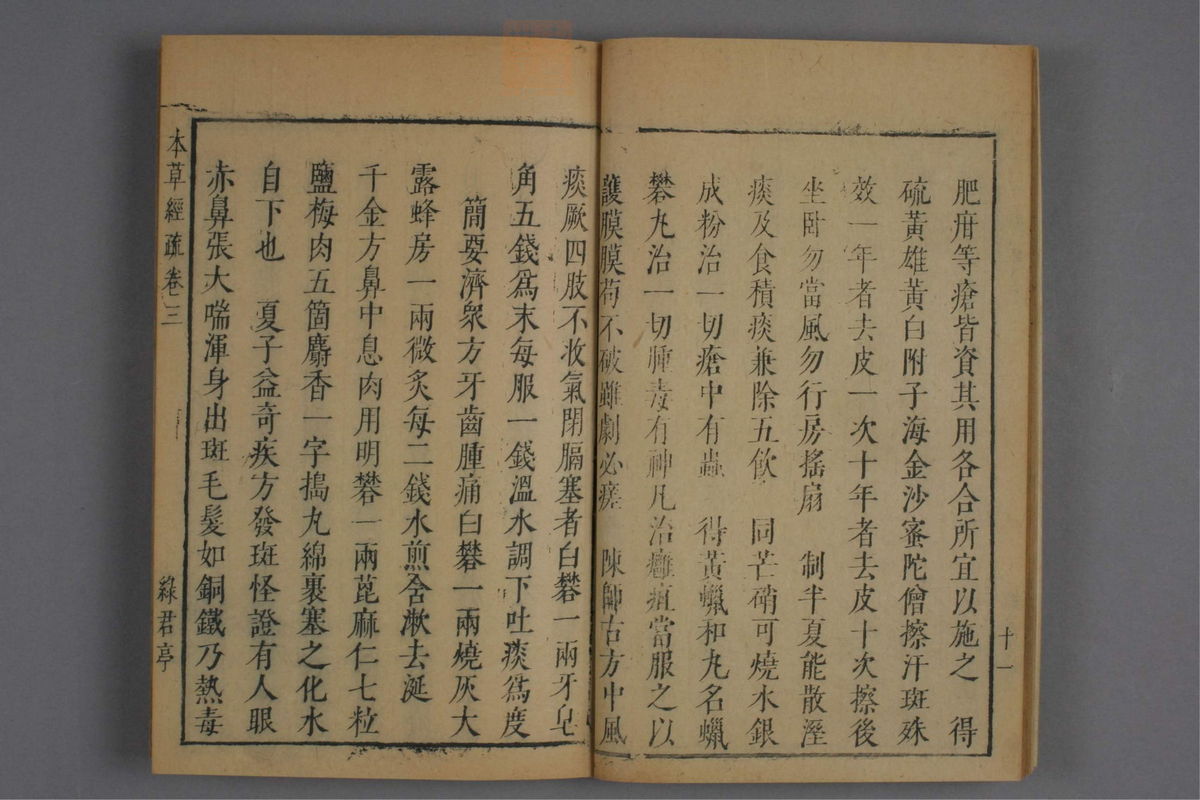 肥疳等瘡皆資其用各合所宜以施之　得
硫黃雄黃白附子海金沙蜜陀僧擦汗斑殊
效一年者去皮一次十年者去皮十次擦後
坐臥勿當風勿行房搖扇　制半夏能散溼
痰及食積痰兼除五飲　同芒硝可燒水銀
成粉治一切瘡中有蟲　得黃蠟和丸名蠟
礬丸治一切腫毒有神凡治癰疽當服之以
護膜膜苟不破雖劇必瘥　陳師古方中風
十一
痰厥四肢不收氣閉膈塞者白礬一兩牙皂
角五錢爲末每服一錢溫水調下吐痰爲度
簡要濟衆方牙齒腫痛白礬一兩燒灰大
露蜂房一兩微炙每二錢水煎含漱去涎
千金方鼻中息肉用明礬一兩蓖麻仁七粒
鹽梅肉五箇麝香一字搗丸綿裹塞之化水
自下也　夏子益奇疾方發斑怪證有人眼
赤鼻張大喘渾身出斑毛髮如銅鐵乃熱毒
本草經疏卷三
綠君亭